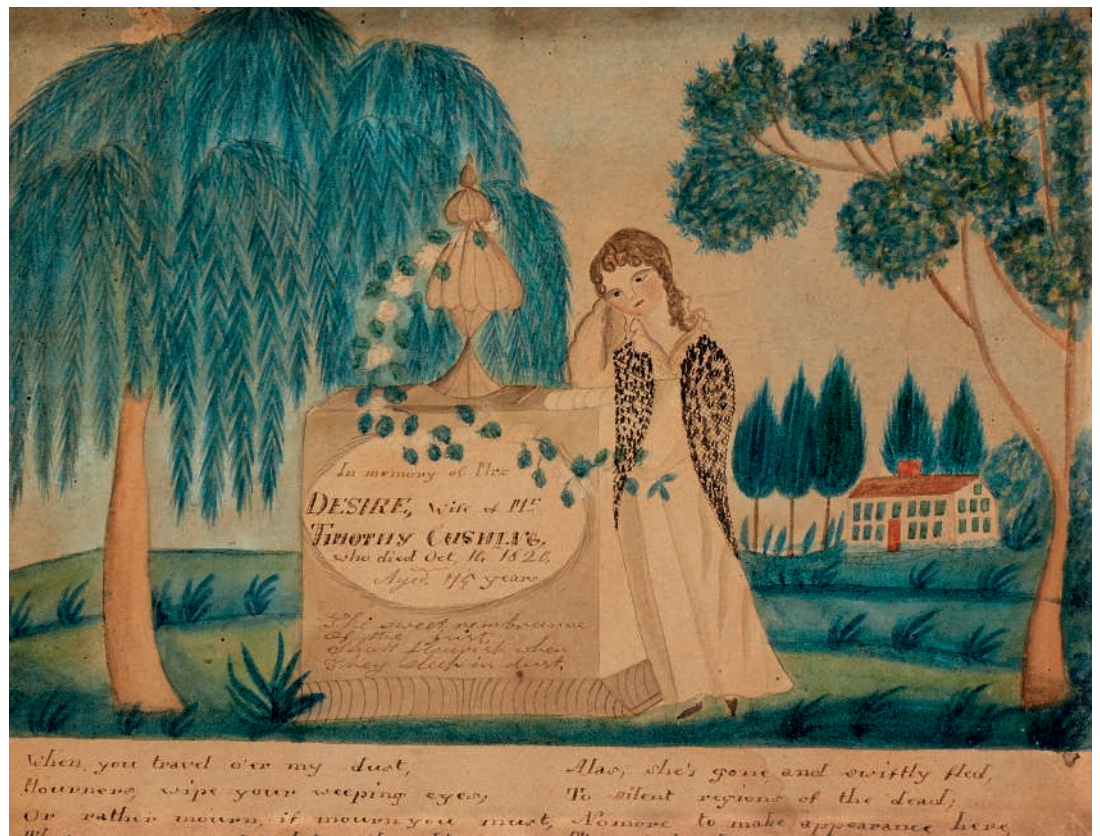 In memory of Mrs
DESIRE, Wife of Mr
TIMOTHY CUSHING,
who died Oct. 1820,
Aged years
The sweet rembrance
Of the just,
Shall flourish when
they sleep in dust.
When you travel o'er my dust,
Mourners, wipe your weeping eyes;
Or rather mourn, if mourn you must,
Alas, she's gone and swiftly fled,
To silent regions of the dead;
No more to make appearance here